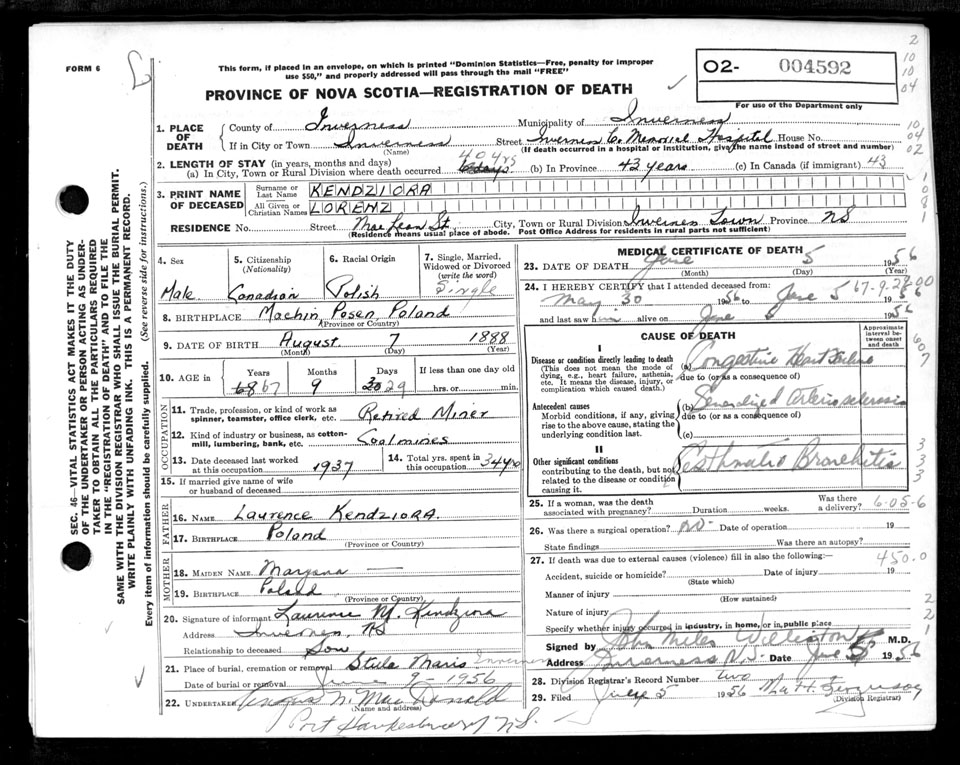 FORM 6
This form, if placed in an envelope, on which is printed "Dominion Statistics—Free, penalty for improper
use $50," and properly addressed will pass through the mail "FREE"
PROVINCE OF NOVA SCOTIA—REGISTRATION OF DEATH
O2- 004592
For use of the Department only
2
10
10
04
10
04
02
1. PLACE OF DEATH
County of Inverness Municipality of Inverness
If in City or Town Inverness Street Inverness Co Memorial Hospital House No.
(Name) (If death occurred in a hospital or institution, give the name instead of street and number)
2. LENGTH OF STAY (in years, months and days) 40 yrs
(a) In City, Town or Rural Division where death occurred 6 days (b) In Province 43 years (c) In Canada (if immigrant) 43
3. PRINT NAME OF DECEASED
Surname or Last Name KENDZIORA
All Given or Christian Names LORENZ
1
0
8
1
RESIDENCE No. Street MacLean St. City, Town or Rural Division Inverness Town Province NS
(Residence means usual place of abode. Post Office Address for residents in rural parts not sufficient)
4. Sex Male
5. Citizenship (Nationality) Canadian
6. Racial Origin Polish
7. Single, Married, Widowed or Divorced (write the word) Single
8. BIRTHPLACE Machin, Posen, Poland
(Province or Country)
9. DATE OF BIRTH August 7 1888
(Month) (Day) (Year)
10. AGE Years 68 67 Months 9 Days 30 29 If less than one day old hrs. or min.
OCCUPATION
11. Trade, profession, or kind of work as spinner, teamster, office clerk, etc. Retired Miner
12. Kind of industry or business, as cotton-mill, lumbering, bank, etc. Coalmines
13. Date deceased last worked at this occupation 1937
14. Total yrs. spent in this occupation 34 yrs
15. If married give name of wife or husband of deceased
FATHER
16. NAME Laurence Kendziora.
17. BIRTHPLACE Poland
(Province or Country)
MOTHER
18. MAIDEN NAME Maryana —
19. BIRTHPLACE Poland
(Province or Country)
20. Signature of informant Laurence M. Kendziora
Address Inverness, NS
Relationship to deceased Son
21. Place of burial, cremation or removal Stella Maris Inverness
Date of burial or removal June 9 - 1956
22. UNDERTAKER Angus N. MacDonald
(Name and address)
Port Hawkesbury NS.
MEDICAL CERTIFICATE OF DEATH
23. DATE OF DEATH June 5 1956
(Month) (Day) (Year)
24. I HEREBY CERTIFY that I attended deceased from: 67-9-29-00
May 30 1956 to June 5 1956
and last saw him alive on June 5 1956
CAUSE OF DEATH
Approximate interval between onset and death
I
Disease or condition directly leading to death (a) Congestive Heart Failure
(This does not mean the mode of dying, e.g., heart failure, asthenia, etc. It means the disease, injury, or complication which caused death.)
due to (or as a consequence of)
Antecedent causes (b) Generalized Arteriosclerosis
Morbid conditions, if any, giving rise to the above cause, stating the underlying condition last.
due to (or as a consequence of)
(c)
II
Other significant conditions contributing to the death, but not related to the disease or condition causing it. Asthmatic Bronchitis
6
0
7
3
3
3
25. If a woman, was the death associated with pregnancy? Duration weeks. Was there a delivery? 6-05-6
26. Was there a surgical operation? No. Date of operation 19
State findings Was there an autopsy?
27. If death was due to external causes (violence) fill in also the following:— 450.0
Accident, suicide or homicide? Date of injury 19
(State which)
Manner of injury
(How sustained)
Nature of injury
Specify whether injury occurred in industry, in home, or in public place
2
2
1
Signed by John Miles Williston M.D.
Address Inverness N.S. Date June 5 1956
28. Division Registrar's Record Number two
29. Filed June 5 1956
(Division Registrar)
SEC. 46—VITAL STATISTICS ACT MAKES IT THE DUTY
OF THE UNDERTAKER OR PERSON ACTING AS UNDER-
TAKER TO OBTAIN ALL THE PARTICULARS REQUIRED
IN THE "REGISTRATION OF DEATH" AND TO FILE THE
SAME WITH THE DIVISION REGISTRAR WHO SHALL ISSUE THE BURIAL PERMIT.
WRITE PLAINLY WITH UNFADING INK. THIS IS A PERMANENT RECORD.
Every item of information should be carefully supplied. (See reverse side for instructions.)